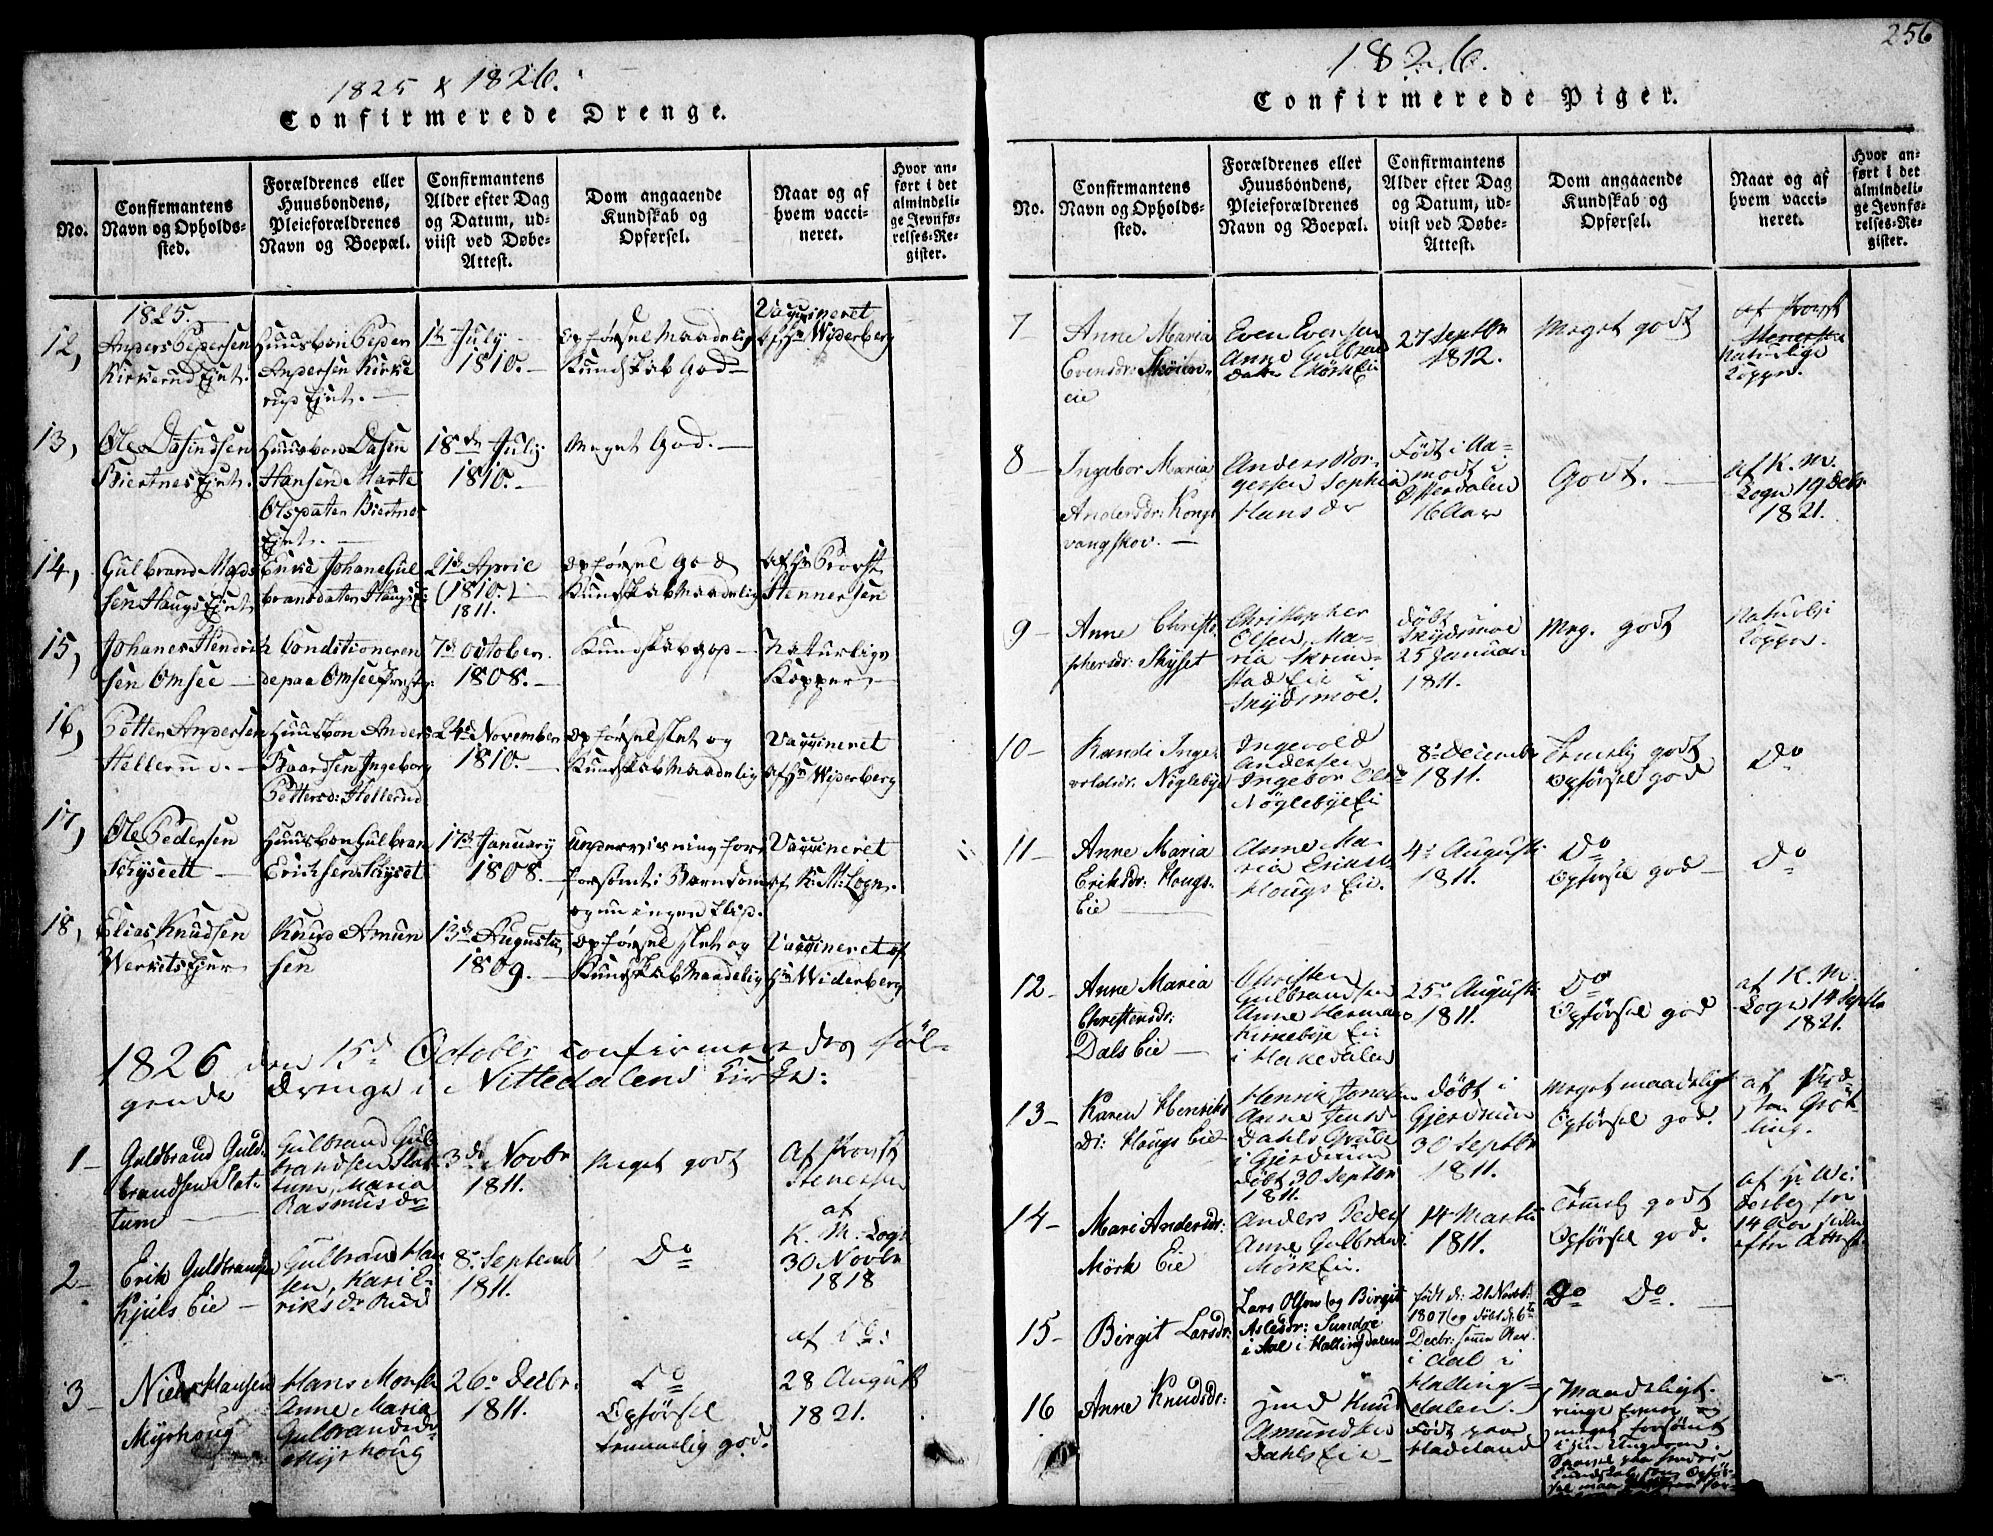 1825 & 1826.
Confirmerede Drenge.
No.
Confirmantens
Navn og Opholds-
sted.
Forældrenes eller
Huusbondens,
Pleieforældrenes
Navn og Boepæl.
Confirmantens
Alder efter Dag
og Datum, ud-
viist ved Døbe-
Attest.
Dom angaaende
Kundskab og
Opførsel.
Naar og af
hvem vacci-
neret.
Hvor an-
ført i det
almindeli-
ge Jevnfø-
relses-Re-
gister.
1825.
12,
Anders Pedersen
Kirkerud Ejet.
Huusbon Peder
Andersen Kirke
rud Ejet.
July
1810.
Opførsel Maadelig
Kundskab God
Vaccineret
af Hr Widerberg
13,
Ole
Biertnes Ejet.
Huusbon
Hansen Marte
Olsdater Biertnes
Ejet.
18de July
1810.
Meget God.
14,
Gulbrand Mads
sen Haugs Ejet
Enke Johane Gul
bransdater Haugs Ei
21de April
(1810.)
1811.
Opførsel God
Kundskab Maadelig
af Hr Provst
Stennersen
15,
Johanes Hendrik
sen Omsee
Conditioneren
de paa Omsee
7de October
1808.
Kundskab god
Naturlige
Kopper
16,
Petter Andersen
Hellerud.
Huusbon Anders
Baardsen Ingeborg
Pettersd: Hellerud
24d November
1810.
Opførsel slet og
Kundskab Maadelig
Vaccineret
af Hr Widerberg
17,
Ole Pedersen
Schysett
Huusbon Gulbran
Ericksen Schyset
17de January
1808.
Undervisning
forsømt i Barndom
og nu ingen Flid.
Vaccineret
af K: M: Logn.
18,
Elias Knudsen
Werkets Ejer
Knud Amun
sen
13de Augusti
1809.
Opførsel slet og
Kundskab Maadelig
Vaccineret af
Hr Widerberg
1826 den 15d October confirmeredes føl-
gende drenge i Nittedalens Kirke:
1
Guldbrand Guld-
brandsen Slat-
tum
Gulbrand Gul
brandsen Slat
tum, Maria
Rasmusdr
3de Novbr
1811.
Meget godt
Af Provst
Stenersen
2
Erik Guldbrandsen
Kjuls Eie
Gulbrand Han
sen, Kari E-
riksdr
8de Septemb
1811.
Do
af
K. M. Logn
30 Novbr
1818
3
Niels Hansen
Myrhoug
Hans Monsen
Anne Maria
Gulbrandsdr
Myrhoug
26de Decbr.
1811.
Do
Opførsel
temmelig god.
af Do:
28 August
1821.
256
1826.
Confirmerede Piger.
No.
Confirmantens
Navn og Opholds-
sted.
Forældrenes eller
Huusbondens,
Pleieforældrenes
Navn og Boepæl.
Confirmantens
Alder efter Dag
og Datum, ud-
viist ved Døbe-
Attest.
Dom angaaende
Kundskab og
Opførsel.
Naar og af
hvem vacci-
neret.
Hvor an-
ført i det
almindeli-
ge Jevnfø-
relses-Re-
gister.
7
Anne Maria
Evensdr:
eie
Even Evensen
Anne Gulbrands
dater Mørk Eie
27 Septbr
1812.
Meget godt
af Provst
Stenersen
Naturlige
Kopper.
8
Ingebor Maria
Andersdr: Kongs
vangskov.
Anders Bor-
gersen Sophia
Hansdr
Født i Aa-
modt i
Østerdalen
16 Aar
Godt.
af K. M.
Logn 19 Decbr
1821.
9
Anne Christo
phersdr: Skyset
Christopher
Elsen, Ma-
ria Skrim-
stad Eie i
Skydsmoe.
Døbt
Skydsmoe
25 Januari
1811.
Meg. godt
Naturlige
Kopper.
10
Randi Inge-
voldsdr. Nøglebye
Ingevold
Andersen
Ingebor Olsdr
Nøglebye Eie
8de Decembr
1811.
Temelig godt
Opførsel god
Do
11
Anne Maria
Eriksdr: Hougs-
Eie
Anne Ma-
ria Eriksdr
Hougs Eie.
4de Augusti
1811.
Do
Opførsel god
Do
12
Anne Maria
Christensdr:
Dals Eie
Christen
Gulbrandsen
Anne Herman
Kirkebye Eie
i Hakedalen
25de Augusti
1811.
Do
Opførsel god
af K. M.
Logn 14 Septbr
1821.
13
Karen Henriks
Dr: Hougs Eie
Henrik Jonasen
Anne Jensdr
Dahls Grube
i Gjerdrum
døbt 30 Septbr
1811.
døbt i
Gjerdrum
30 Septbr
1811.
Meget maadeligt
Opførsel god.
af
14
Mari Andersdr:
Mørk Eie
Anders Peders
Anne Gulbrand
Mørk Eie.
14 Martii
1811.
Temelig godt
Opførsel god.
af Hr Wi-
derberg for
14 Aar siden
efter Attest
15
Birgit Larsdr:
Lars Olsen (og Birgit
Aslesdr: Sundre
i Aal i Hallingdalen
født d: 21 Novbr:
1807 (og døbt d: 6te
Decbr: samme Aar.
i Aal i
Halling-
dalen.
Do Do.
16
Anne Knudsdr:
Knud
Amundsen
Dahls Eie
Født paa
Hadeland
Maadeligt.
ringe Evner og
meget forsømt
i sin Ungdom.